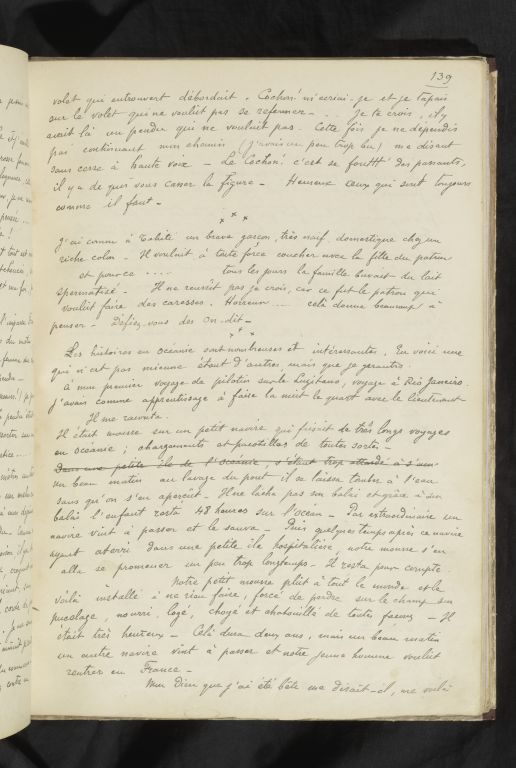 139
volet qui entrouvert débordait. Cochon! m'écriai-je et je tapais
sur le volet qui ne voulut pas se refermer - ... Je te crois, il y
avait là un pendu qui ne voulait pas. Cette fois je ne dépendis
pas continuant mon chemin (j'avais un peu trop bu) me disant
sans cesse à haute voix - Le Cochon! c'est se foutttt' des passants,
il y a de quoi vous casser la figure - Heureux ceux qui sont toujours
comme il faut -
* * *
J'ai connu à Tahiti un brave garçon, très naïf domestique chez un
riche colon - Il voulait à toute force coucher avec la fille du patron
et pour ce .... tous les jours la famille buvait du lait
spermatisé - Il ne réussit pas je crois, car ce fut le patron qui
voulut faire des caresses. Horreur .... celà donne beaucoup à
penser - Défiez vous des On-dit -
* * *
Les histoires en océanie sont nombreuses et intéressantes. En voici une
qui n'est pas mienne étant d'autrui, mais que je garantis.
à mon premier voyage de pilotin sur le Luzitano, voyage à Rio Janeiro
j'avais comme apprentissage à faire la nuit le quart avec le lieutenant
Il me raconta.
Il était mousse sur un petit navire qui faisait de très longs voyages
en océanie; chargements et pacotilles de toutes sortes.
Dans une petite île de l'océanie, s'étant trop à s'en
Un beau matin au lavage du pont il se laissa tomber à l'eau
sans qu'on s'en aperçut - Il ne lâcha pas son balai et grâce à son
balai l'enfant resta 48 heures sur l'océan - Par extraordinaire un
navire vint à passer et le sauva - Puis quelque temps après ce navire
ayant aterri dans une petite île hospitalière, notre mousse s'en
alla se promener un peu trop longtemps - Il resta pour compte.
Notre petit mousse plut à tout le monde et le
voilà installé à ne rien faire, forcé de perdre sur le champ son
pucelage, nourri, logé, choyé et chatouillé de toutes façons - Il
était très heureux - Celà dura deux ans, mais un beau matin
un autre navire vint à passer et notre jeune homme voulut
rentrer en France -
Mon Dieu que j'ai été bête me disait-il, me voilà